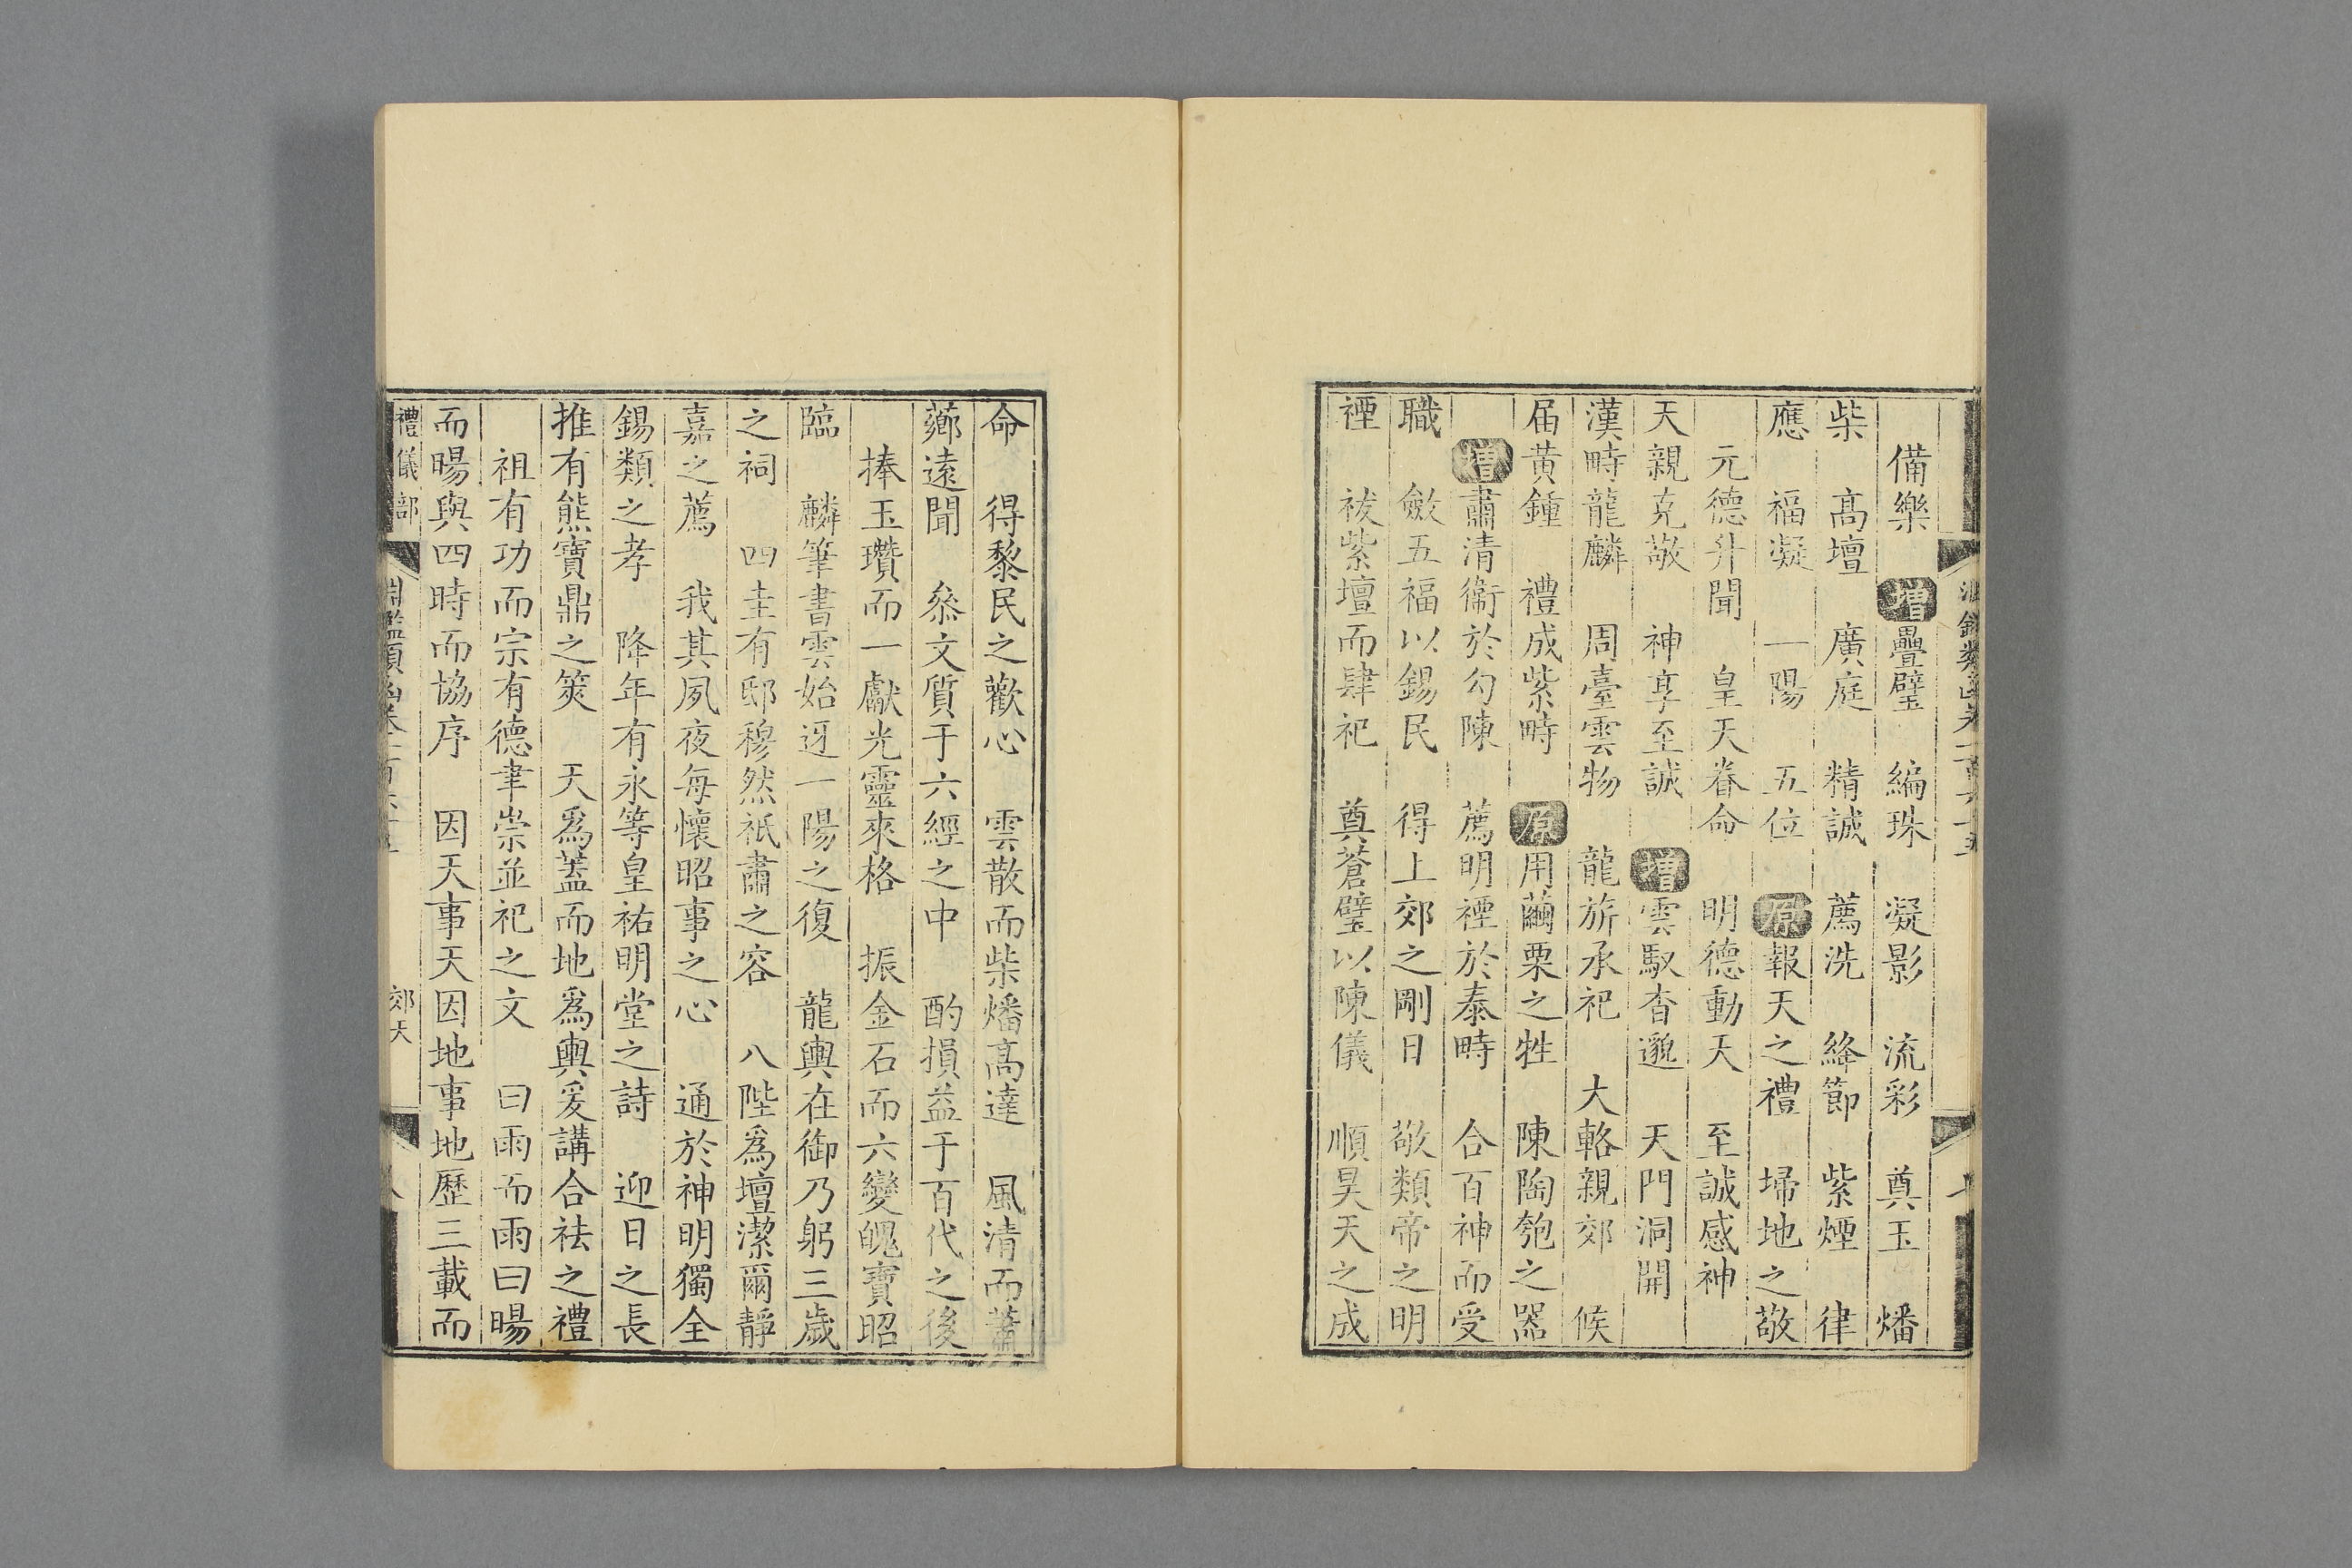 備樂　增疊璧　編珠　凝影　流彩　奠玉　燔
柴　高壇　廣庭　精誠　薦洗　絳節　紫煙　律
應　福凝　一陽　五位　原報天之禮　埽地之敬
元德升聞　皇天眷命　明德動天　至誠感神
天親克敬　神享至誠　增雲馭杳邈　天門洞開
漢畤龍麟　周臺雲物　龍旂承祀　大輅親郊　候
届黄鍾　禮成紫畤　原用繭栗之牲　陳陶匏之器
增肅清衞於勾陳　薦明禋於泰畤　合百神而受
職　斂五福以錫民　得上郊之剛日　敬類帝之明
禋　祓紫壇而肆祀　奠蒼璧以陳儀　順昊天之成
命　得黎民之歡心　雲散而柴燔高達　風清而蕭
薌遠聞　叅文質于六經之中　酌損益于百代之後
捧玉瓚而一獻光靈來格　振金石而六變魄寶昭
臨　麟筆書雲始迓一陽之復　龍輿在御乃躬三歲
之祠　四圭有邸穆然祇肅之容　八陛爲壇潔爾靜
嘉之薦　我其夙夜每懷昭事之心　通於神明獨全
錫類之孝　降年有永等皇祐明堂之詩　迎日之長
推有熊寶鼎之筴　天爲蓋而地爲輿爰講合祛之禮
祖有功而宗有德聿崇並祀之文　曰雨而雨曰暘
而暘與四時而協序　因天事天因地事地歷三載而
禮儀部　淵鑑類函卷一百六十　郊天　八